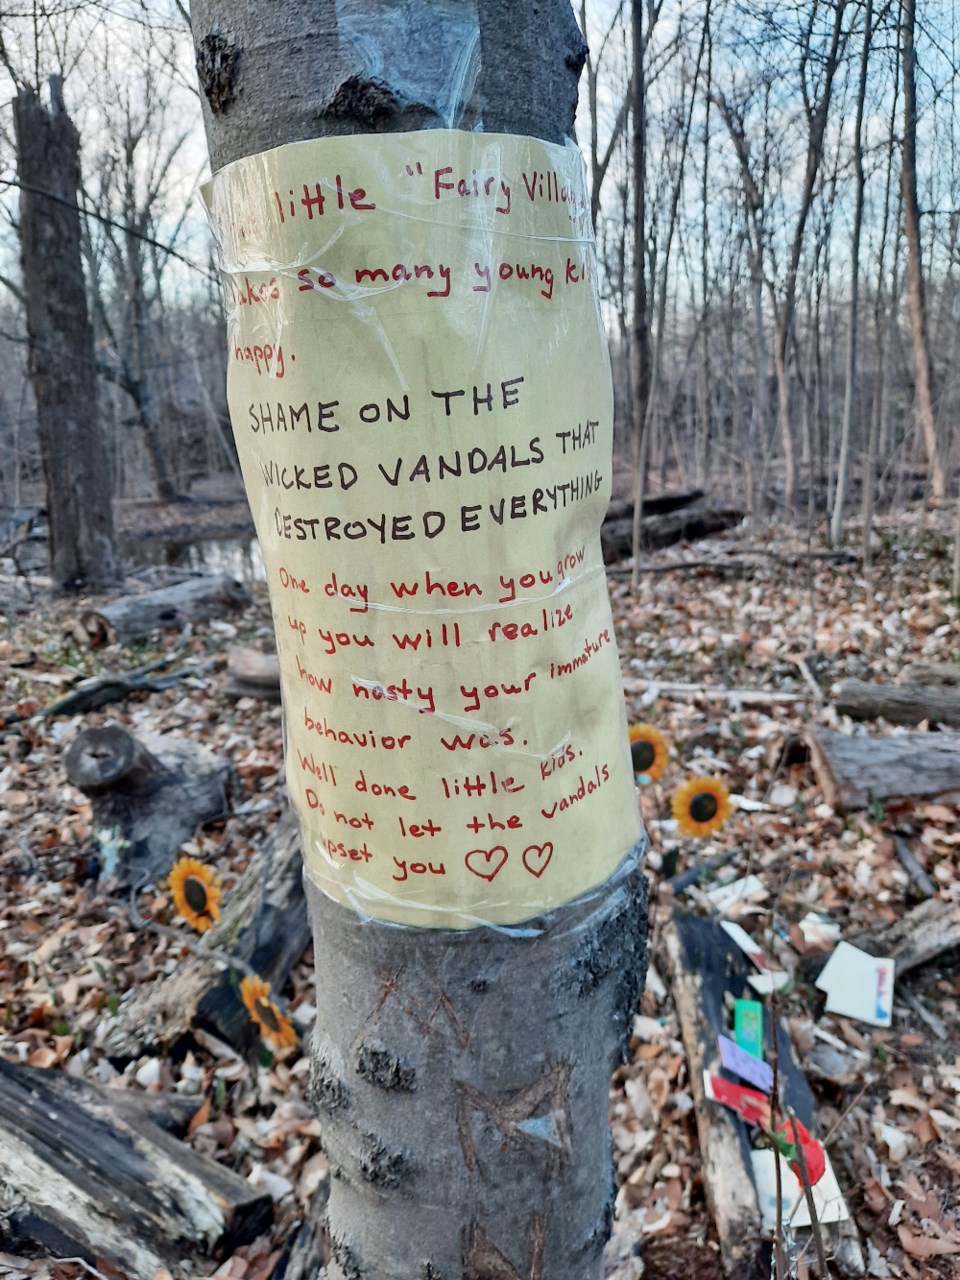 little "Fairy Villag
akes so many young ki
happy.
SHAME ON THE
WICKED VANDALS THAT
DESTROYED EVERYTHING
One day when you grow
up you will realize
how nasty your immature
behavior was.
Well done little kids.
Do not let the vandals
upset you ♡ ♡